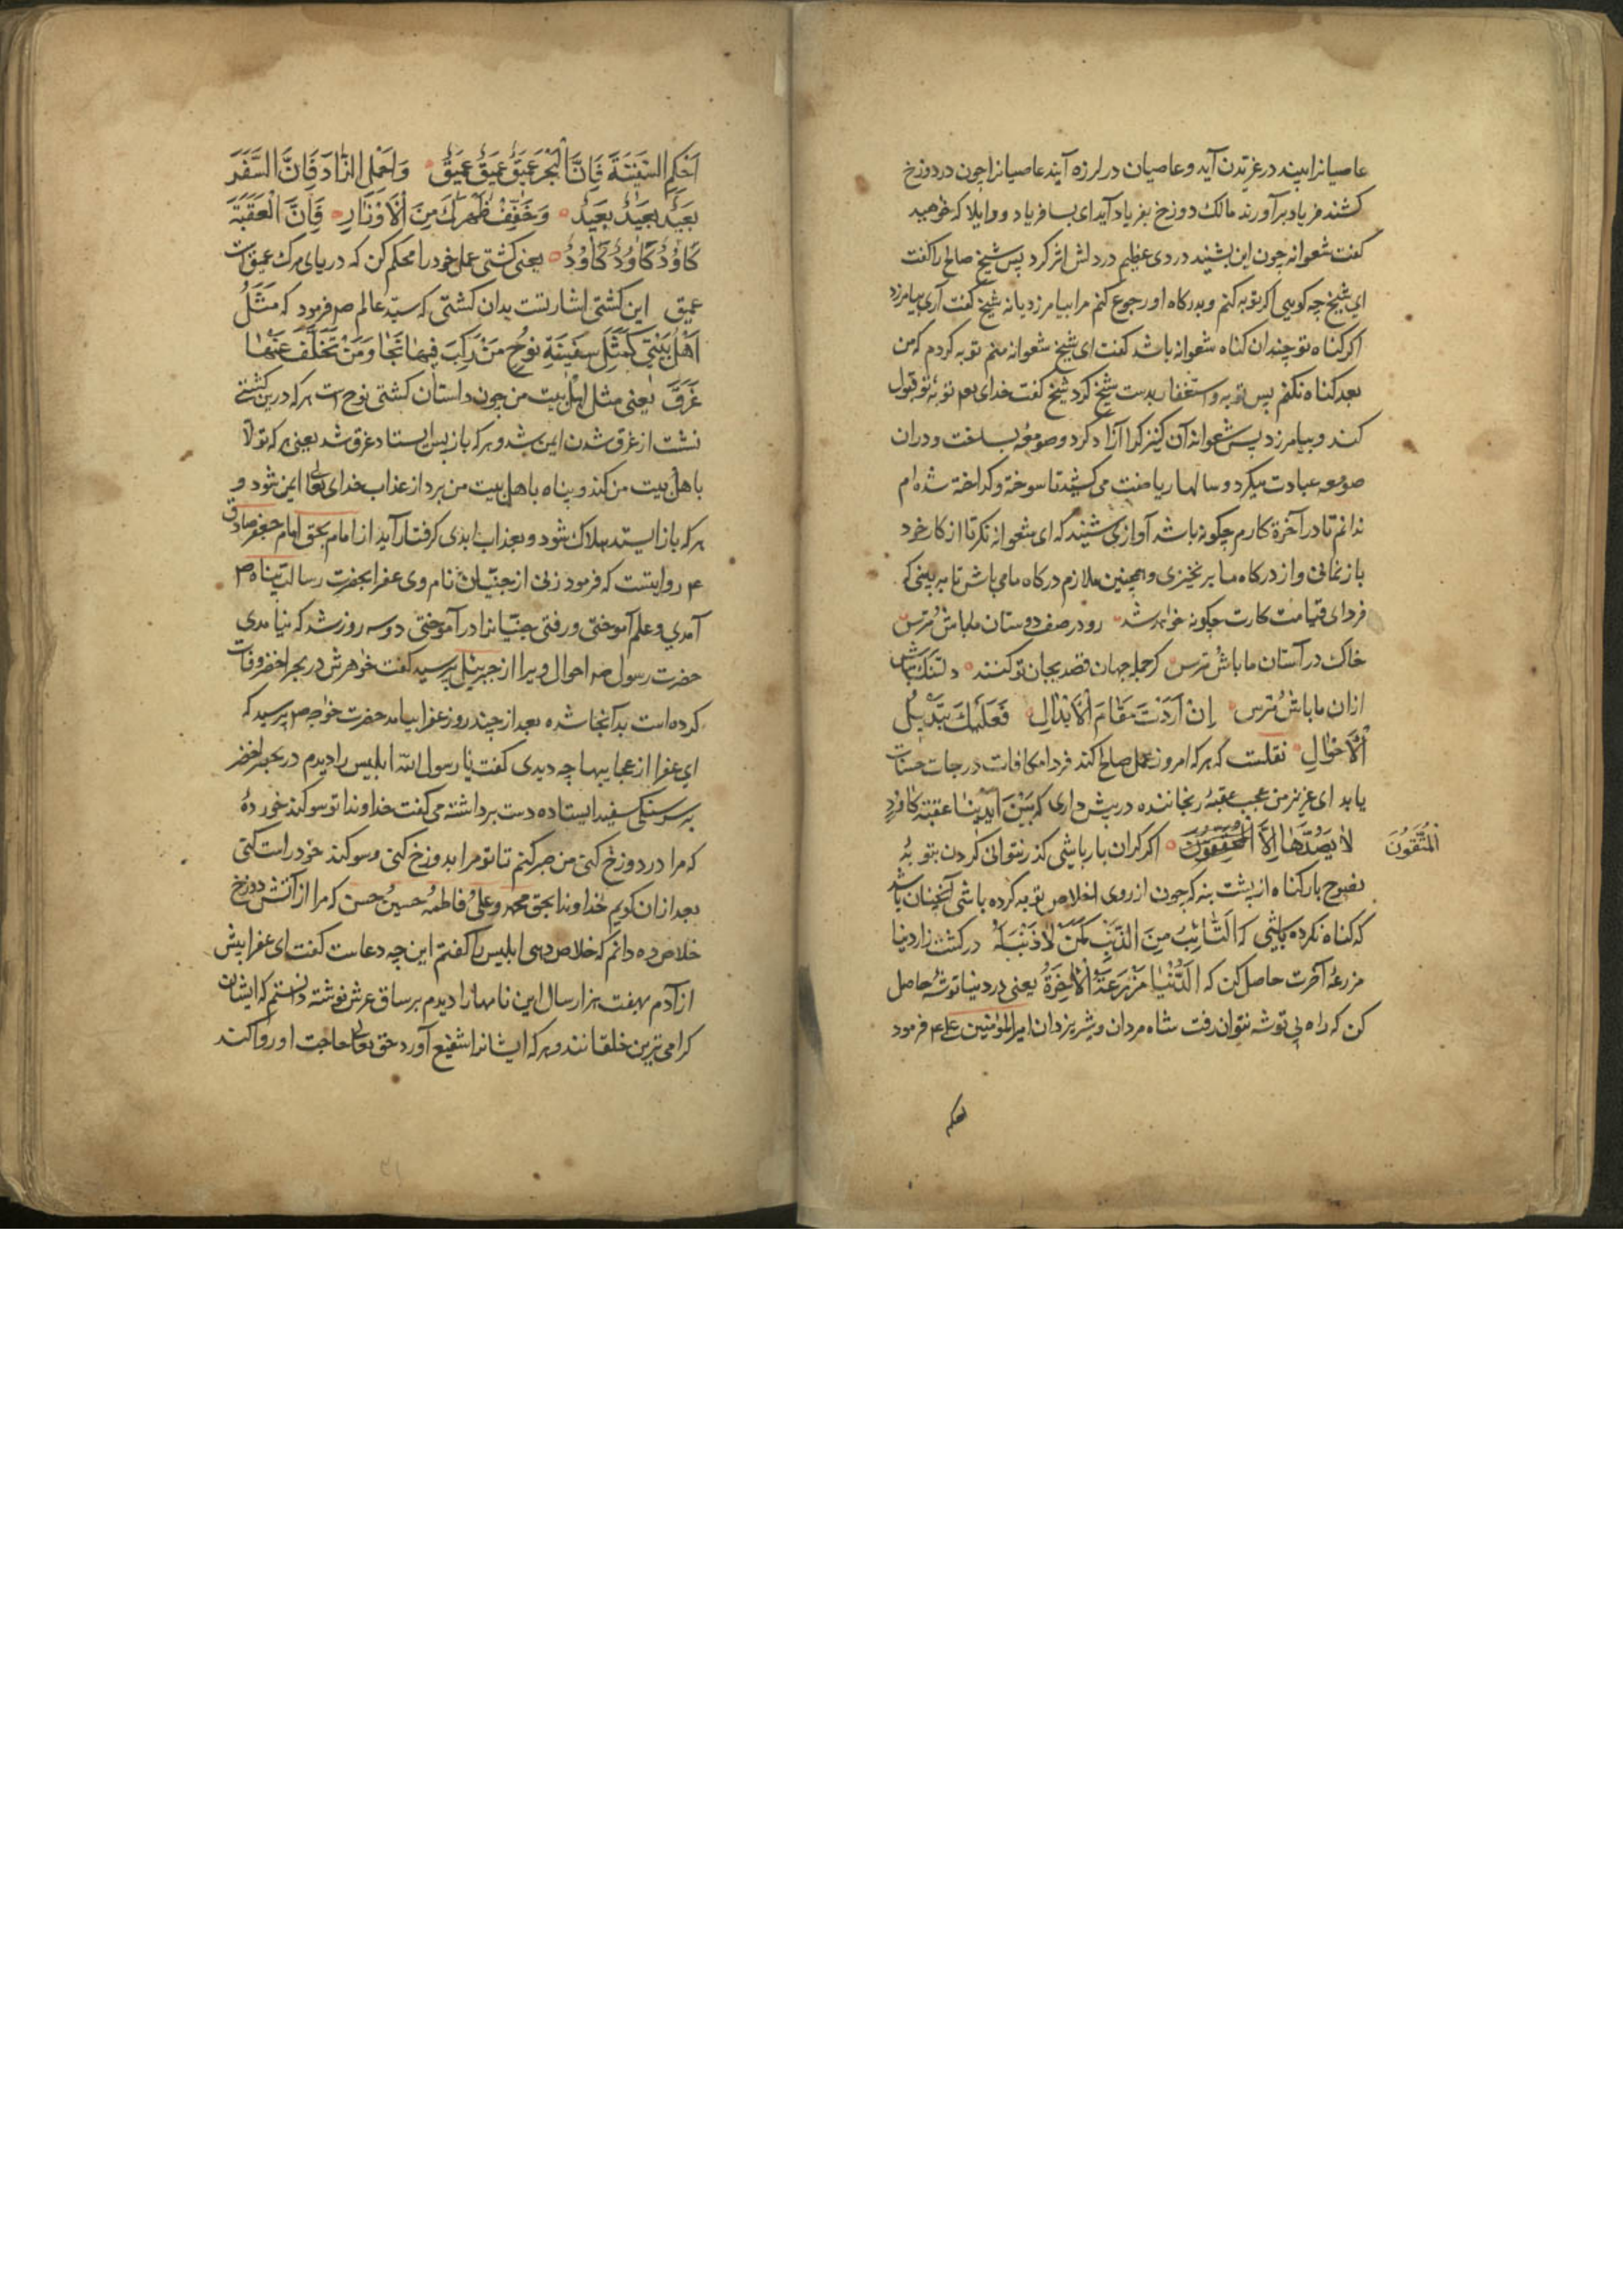 عاصیانرا ببیند در غریدن آید و عاصیان در لرزه آیند عاصیانرا چون در دوزخ
کشند فریاد برآورند مالک دوزخ بفریاد آید ای بسا فریاد و واویلا که خوهید
کفت شعوانه چون این بشنید دردی عظیم در دلش اثر کرد پس شیخ صالح را کفت
ای شیخ چه کویی اکر توبه کنم و بدرکاه او رجوع کنم مرا بیامرزد یا نه شیخ کفت آری بیامرزد
اکر کناه تو چندان کناه شعوانه باشد کفت ای شیخ شعوانه منم توبه کردم که من
بعد کناه نکنم پس توبه و استغفار بدست شیخ کرد شیخ کفت خدای تعه توبهٔ تو قبول
کند و بیامرزد پس شعوانه آن کنیزکرا آزاد کرد و صومعهٔ بساخت و دران
صومعه عبادت میکرد و سالها ریاضت می کشید تا سوخته و کداخته شده ام
ندانم تا در آخرة کارم چکونه باشد آوازی شنید که ای شعوانه نکر تا از کار خود
باز نمانی و از درکاه ما برنخیزی و همچنین ملازم درکاه ما می باش تا به بینی که
فردای قیامت کارت چکونه خواهد شد رو در صف دوستان ما باش و مترس
خاک در آستان ما باش و مترس کر جمله جهان قصد بجان تو کنند دلتنک مباش
ازان ما باش و مترس اِنْ اَرَدْتَ مَقَامَ الْاَبْدَالِ فَعَلَیْكَ بِتَبْدِیلِ
الْاَحْوَالِ نقلست که هرکه امروز عمل صالح کند فردا مکافات درجات حسنات
یابد ای عزیز من عجب عقبهٔ رنجاننده در پیش داری که بَیْنَ اَیْدِینَا عَقَبَةٌ کَاوُدٌ
لَا یَصْعَدُهَا اِلَّا الْمُخَفِّفُونَ اکر کران بار باشی کذر نتوانی کردن بتوبهٔ
اَلْمُتَّقُونَ
نصوح بار کناه از پشت بنه که چون از روی اخلاص توبه کرده باشی آنچنان باشد
که کناه نکرده باشی که اَلتَّائِبُ مِنَ الذَّنْبِ کَمَنْ لَا ذَنْبَ لَهُ در کشت زار دنیا
مزرعهٔ آخرت حاصل کن که اَلدُّنْیَا مَزْرَعَةُ الْاٰخِرَةُ یعنی در دنیا توشهٔ حاصل
کن که راه بی توشه نتوان رفت شاه مردان و شیر یزدان امیرالمؤمنین علی ع م فرمود
احکم
اَحْکِمِ السَّفِینَةَ فَاِنَّ الْبَحْرَ عَمِیقٌ عَمِیقٌ عَمِیقٌ وَاحْمِلِ الزَّادَ فَاِنَّ السَّفَرَ
بَعِیدٌ بَعِیدٌ بَعِیدٌ وَخَفِّفْ ظَهْرَكَ مِنَ الْاَوْزَارِ فَاِنَّ الْعَقَبَةَ
کَاوُدٌ کَاوُدٌ کَاوُدٌ یعنی کشتی عمل خود را محکم کن که دریای مرک عمیق است
عمیق این کشتی اشارتست بدان کشتی که سید عالم صم فرمود که مَثَلُ
اَهْلُ بَیْتِی کَمَثَلِ سَفِینَةِ نُوحٍ مَنْ رَکِبَ فِیهَا نَجَا وَمَنْ تَخَلَّفَ عَنْهَا
غَرِقَ یعنی مثل اهل بیت من چون داستان کشتی نوح است هرکه درین کشتی
نشست از غرق شدن ایمن شد و هرکه باز پس ایستاد غرق شد یعنی هرکه تولا
با هل بیت من کند و پناه با هل بیت من برد از عذاب خدای تعالی ایمن شود و
هرکه باز ایستد هلاک شود و بعذاب ابدی کرفتار آید از امام بحق امام جعفر صادق
ع م روایتست که فرمود زنی از جنیان نام وی عفرا بحضرت رسالت پناه صم
آمدی و علم آموختی و رفتی جنیانرا درآموختی دو سه روز شد که نیامدی
حضرت رسول صم احوال ویرا از جبرئیل بپرسید کفت خوهرش در بحر اخضر وفات
کرده است بدانجا شده بعد از چند روز عفرا بیامد حضرت خواجه صم پرسید که
ای عفرا از عجایبها چه دیدی کفت یا رسول الله ابلیس را دیدم در بحر اخضر
بر سر سنکی سفید ایستاده دست برداشته می کفت خداوندا تو سوکند خوردهٔ
که مرا در دوزخ کنی من صبر کنم تا تو مرا بدوزخ کنی و سوکند خود راست کنی
بعد ازان کویم خداوندا بحق محمد و علی و فاطمه و حسین و حسن که مرا از آتش دوزخ
خلاص ده دانم که خلاص دهی ابلیس را کفتم این چه دعاست کفت ای عفرا پیش
از آدم بهفت هزار سال این نامها را دیدم بر ساق عرش نوشته دانستم که ایشان
کرامی ترین خلقانند و هرکه ایشانرا شفیع آورد حق تعالی حاجت او روا کند